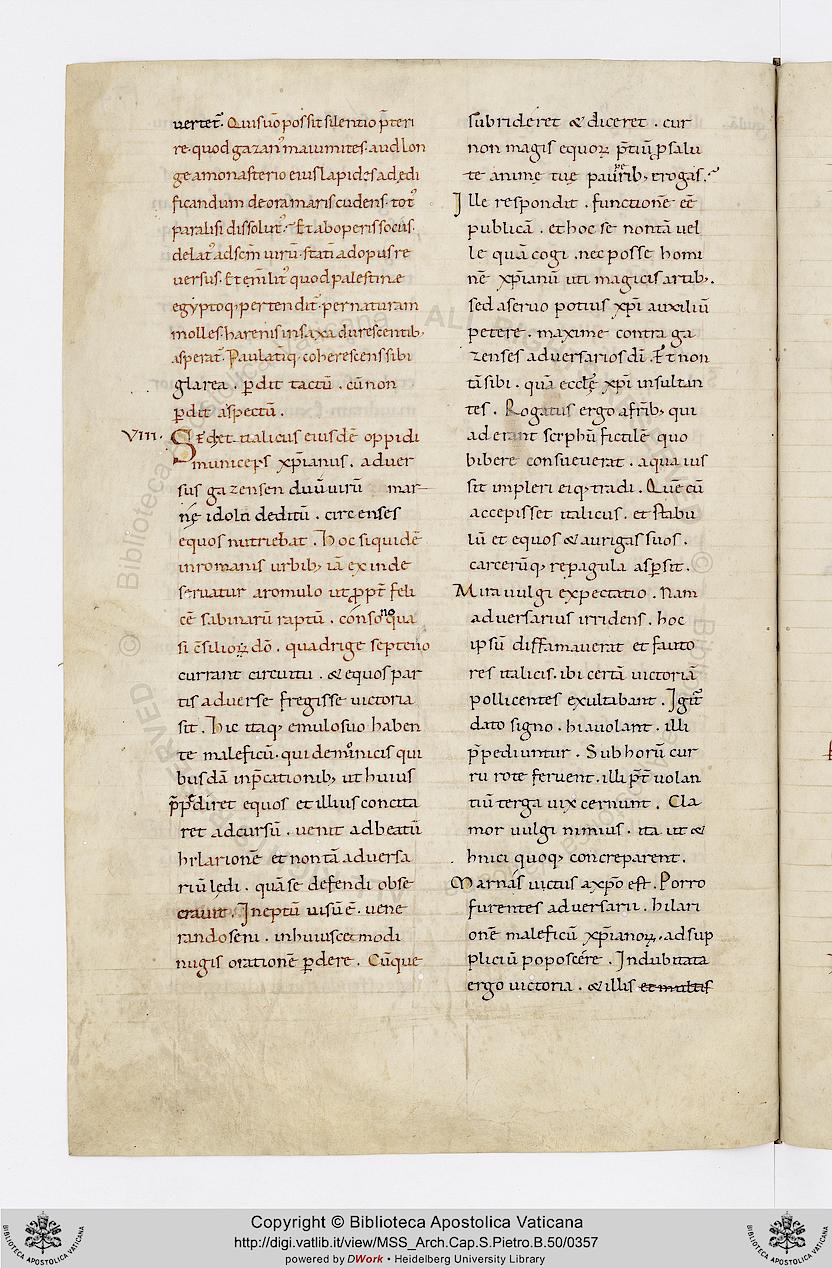 uertet᷒. Quisuo possit silentio p̄teri
re. quod gazan᷒ maiumites. aud lon
ge amonasterio eius lapides adedi
ficandum deoramaris cudens. tot᷒
paralisi dissolut᷒. Et aboperis sociis.
delat᷒ adscm̄ uirū. stati adopus re
uersus. Et em̄ lit᷒ quod palestinae
egyptoq; pertendit᷒. per naturam
molles. harenis insaxa durescentib;
asperat᷒. Paulatiq; coherescens sibi
glarea. ꝑdit tactū. cū non
ꝑdit aspectū.
VIII.
Sed et italicus eiusdē oppidi
municeps xp̄ianus. aduer
sus gazensen duūuirū mar
nę idolo deditū. circenses
equos nutriebat. Hoc siquidē
inromanis urbib; iā exinde
seruatur aromulo ut ꝓpt᷒ feli
cē sabinarū raptū. conso no qua
si c̄silioꝝ dō. quadrige septeno
currant circuitu. & equos par
tis aduerse fregisse uictoria
sit. Hic itaq; emulo suo haben
te maleficū. qui demonicis qui
busdā inp̄cationib; ut huius
p̄pediret equos et illius concita
ret adcursū. uenit adbeatū
hilarionē et non tā aduersa
riū lędi. quā se defendi obse
crauit. Ineptū uisū ē. uene
rando seni. inhuiuscemodi
nugis orationē ꝑdere. Cūque
subrideret & diceret. cur
non magis equoꝝ p̄tiū ꝓ salu
te animę tuę paupe rib; erogas.
Ille respondit. functionē eē
publicā. et hoc se non tā uel
le quā cogi. nec posse homi
nē xp̄ianū uti magicis artib;.
sed aseruo potius xp̄i auxiliū
petere. maxime contra ga
zenses aduersarios dī. Et non
tā sibi. quā ecclę xp̄i insultan
tes. Rogatus ergo afrīb; qui
aderant scyphū fictilē quo
bibere consueuerat. aqua ius
sit impleri eiq; tradi. Quē cū
accepisset italicus. et stabu
lū et equos & aurigas suos.
carcerūq; repagula aspersit.
Mira uulgi expectatio. Nam
aduersarius irridens. hoc
ipsū diffamauerat et fauto
res italicis. ibi certā uictoriā
pollicentes exultabant. Igit᷒
dato signo. hi auolant. illi
p̄pediuntur. Sub horū cur
ru rote feruent. illi p̄t᷒ uolan
tiū terga uix cernunt. Cla
mor uulgi nimius. ita ut &
hnici quoq; concreparent.
Marnas uictus axp̄o est. Porro
furentes aduersarii. hilari
onē maleficū xp̄ianoꝝ. ad sup
pliciū poposcere. Indubitata
ergo uictoria. & illis et multis
Copyright © Biblioteca Apostolica Vaticana
http://digi.vatlib.it/view/MSS_Arch.Cap.S.Pietro.B.50/0357
powered by DWork • Heidelberg University Library